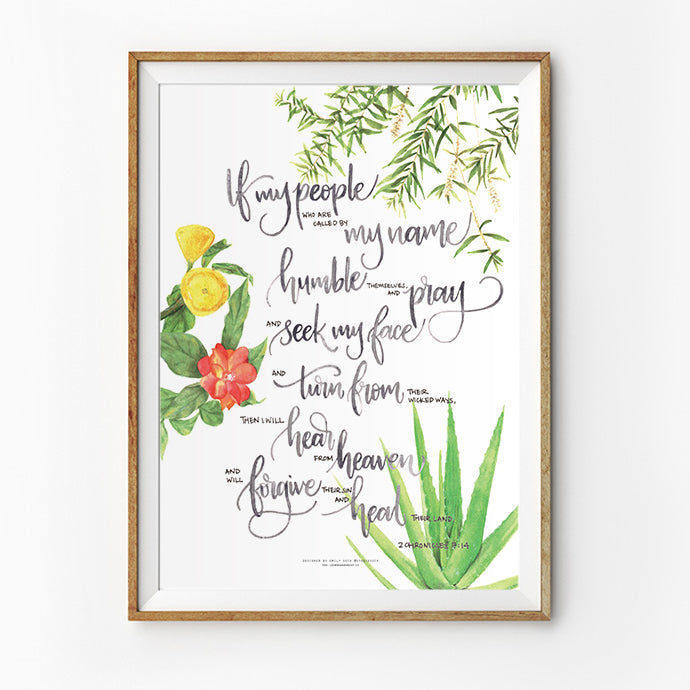 If my people
WHO ARE
CALLED BY my name
humble THEMSELVES, AND pray
AND seek my face
AND turn from THEIR WICKED WAYS,
THEN I WILL hear
FROM heaven
AND WILL forgive THEIR SIN AND heal THEIR LAND.
2 CHRONICLES 7:14